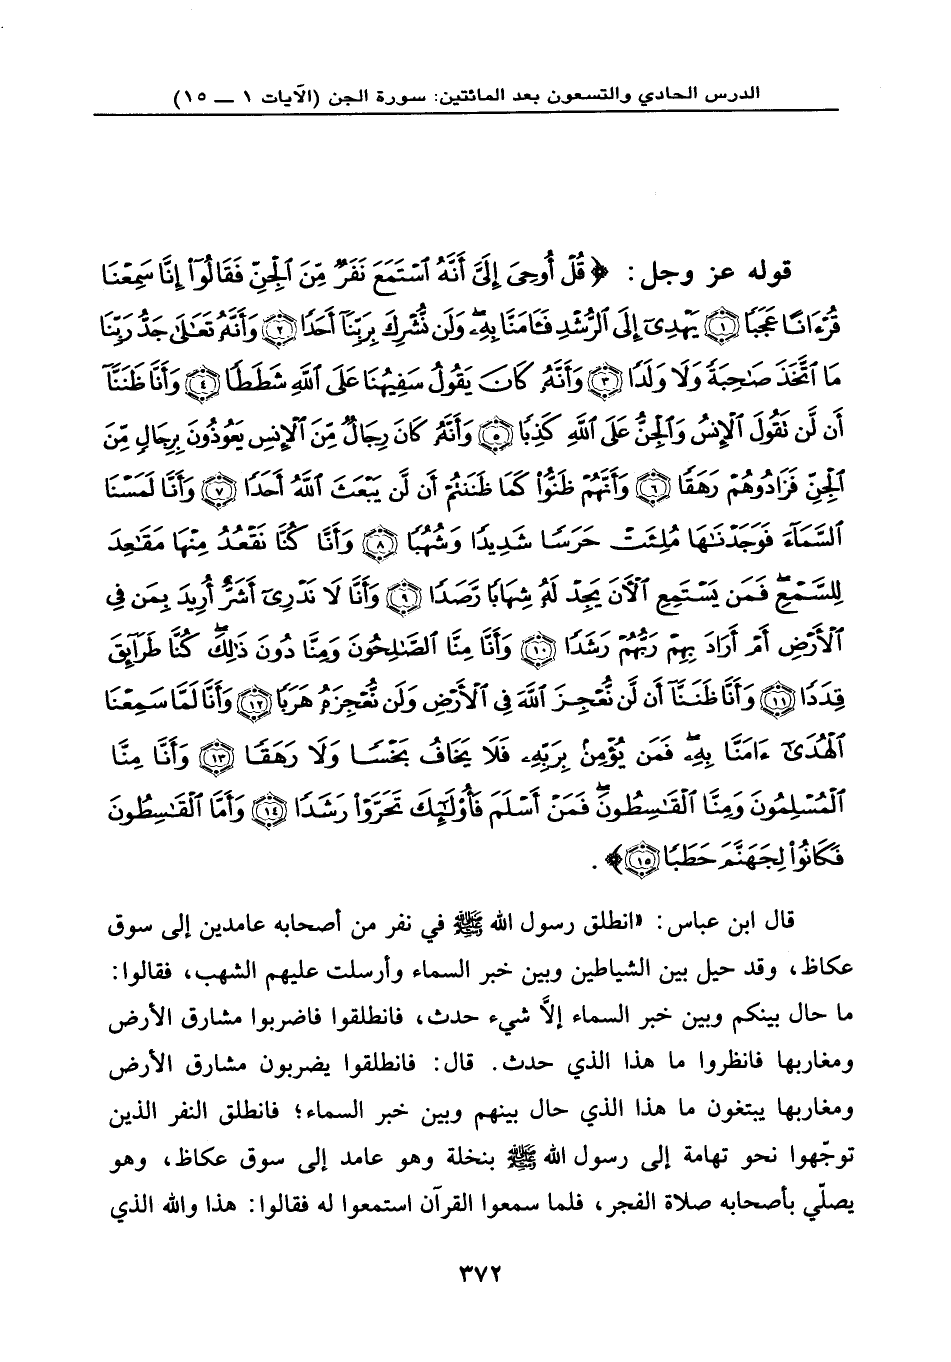 الدرس الحادي والتسعون بعد المائتين: سورة الجن (الآيات ١ ـ ١٥)
قوله عز وجل: ﴿قُلْ أُوحِىَ إِلَىَّ أَنَّهُ ٱسْتَمَعَ نَفَرٌ مِّنَ ٱلْجِنِّ فَقَالُوٓا۟ إِنَّا سَمِعْنَا
قُرْءَانًا عَجَبًا ۝١ يَهْدِىٓ إِلَى ٱلرُّشْدِ فَـَٔامَنَّا بِهِۦ ۖ وَلَن نُّشْرِكَ بِرَبِّنَآ أَحَدًا ۝٢ وَأَنَّهُۥ تَعَـٰلَىٰ جَدُّ رَبِّنَا
مَا ٱتَّخَذَ صَـٰحِبَةً وَلَا وَلَدًا ۝٣ وَأَنَّهُۥ كَانَ يَقُولُ سَفِيهُنَا عَلَى ٱللَّهِ شَطَطًا ۝٤ وَأَنَّا ظَنَنَّآ
أَن لَّن تَقُولَ ٱلْإِنسُ وَٱلْجِنُّ عَلَى ٱللَّهِ كَذِبًا ۝٥ وَأَنَّهُۥ كَانَ رِجَالٌ مِّنَ ٱلْإِنسِ يَعُوذُونَ بِرِجَالٍ مِّنَ
ٱلْجِنِّ فَزَادُوهُمْ رَهَقًا ۝٦ وَأَنَّهُمْ ظَنُّوا۟ كَمَا ظَنَنتُمْ أَن لَّن يَبْعَثَ ٱللَّهُ أَحَدًا ۝٧ وَأَنَّا لَمَسْنَا
ٱلسَّمَآءَ فَوَجَدْنَـٰهَا مُلِئَتْ حَرَسًا شَدِيدًا وَشُهُبًا ۝٨ وَأَنَّا كُنَّا نَقْعُدُ مِنْهَا مَقَـٰعِدَ
لِلسَّمْعِ ۖ فَمَن يَسْتَمِعِ ٱلْـَٔانَ يَجِدْ لَهُۥ شِهَابًا رَّصَدًا ۝٩ وَأَنَّا لَا نَدْرِىٓ أَشَرٌّ أُرِيدَ بِمَن فِى
ٱلْأَرْضِ أَمْ أَرَادَ بِهِمْ رَبُّهُمْ رَشَدًا ۝١٠ وَأَنَّا مِنَّا ٱلصَّـٰلِحُونَ وَمِنَّا دُونَ ذَٰلِكَ ۖ كُنَّا طَرَآئِقَ
قِدَدًا ۝١١ وَأَنَّا ظَنَنَّآ أَن لَّن نُّعْجِزَ ٱللَّهَ فِى ٱلْأَرْضِ وَلَن نُّعْجِزَهُۥ هَرَبًا ۝١٢ وَأَنَّا لَمَّا سَمِعْنَا
ٱلْهُدَىٰٓ ءَامَنَّا بِهِۦ ۖ فَمَن يُؤْمِنۢ بِرَبِّهِۦ فَلَا يَخَافُ بَخْسًا وَلَا رَهَقًا ۝١٣ وَأَنَّا مِنَّا
ٱلْمُسْلِمُونَ وَمِنَّا ٱلْقَـٰسِطُونَ ۖ فَمَنْ أَسْلَمَ فَأُو۟لَـٰٓئِكَ تَحَرَّوْا۟ رَشَدًا ۝١٤ وَأَمَّا ٱلْقَـٰسِطُونَ
فَكَانُوا۟ لِجَهَنَّمَ حَطَبًا ۝١٥﴾.
قال ابن عباس: «انطلق رسول الله ﷺ في نفر من أصحابه عامدين إلى سوق
عكاظ، وقد حيل بين الشياطين وبين خبر السماء وأرسلت عليهم الشهب، فقالوا:
ما حال بينكم وبين خبر السماء إلاَّ شيء حدث، فانطلقوا فاضربوا مشارق الأرض
ومغاربها فانظروا ما هذا الذي حدث. قال: فانطلقوا يضربون مشارق الأرض
ومغاربها يبتغون ما هذا الذي حال بينهم وبين خبر السماء؛ فانطلق النفر الذين
توجّهوا نحو تهامة إلى رسول الله ﷺ بنخلة وهو عامد إلى سوق عكاظ، وهو
يصلّي بأصحابه صلاة الفجر، فلما سمعوا القرآن استمعوا له فقالوا: هذا والله الذي
٣٧٢